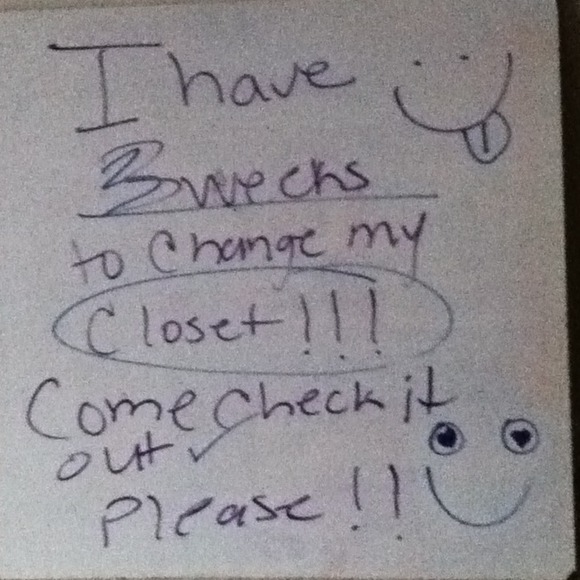 I have
3 weeks
to change my
Closet!!!
Come check it
out
please!!